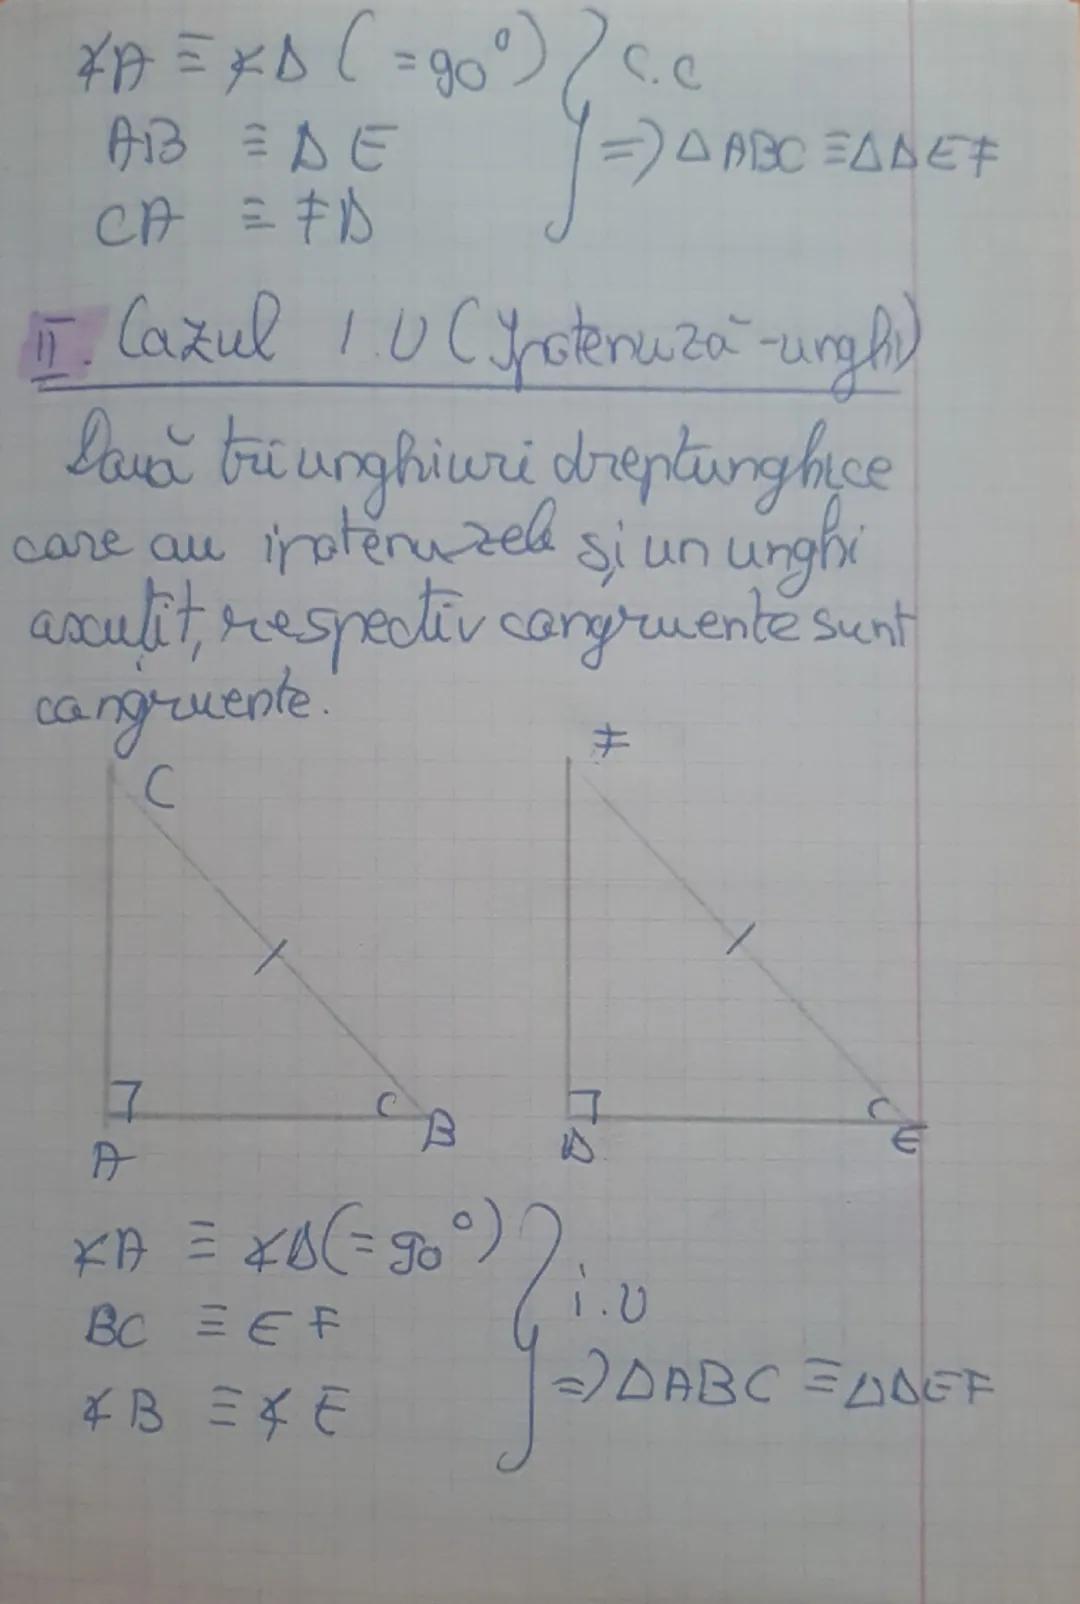 ∢A ≡ ∢D (=90°) } C.C
AB ≡ DE => △ABC ≡ △DEF
CA ≡ FD
II. Cazul I.U (Ipotenuză-unghi)
Două triunghiuri dreptunghice
care au ipotenuzele și un unghi
ascuțit, respectiv congruente sunt
congruente.
C F
A B D E
∢A ≡ ∢D (=90°) } i.U
BC ≡ EF
∢B ≡ ∢E => △ABC ≡ △DEF